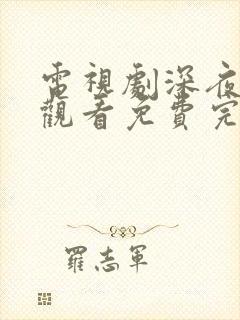 電視劇深夜
觀看免費完
羅志軍